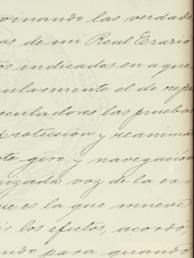 vinando las verdad
as de mi Real Erario
os indicados en a que
ularmente el de repa
eculadores las pruebas
protección y reanima
oto giro y navegación
izada voz de la ex
ue es la que mueve
ir los efectos, acordo
ndo para quando